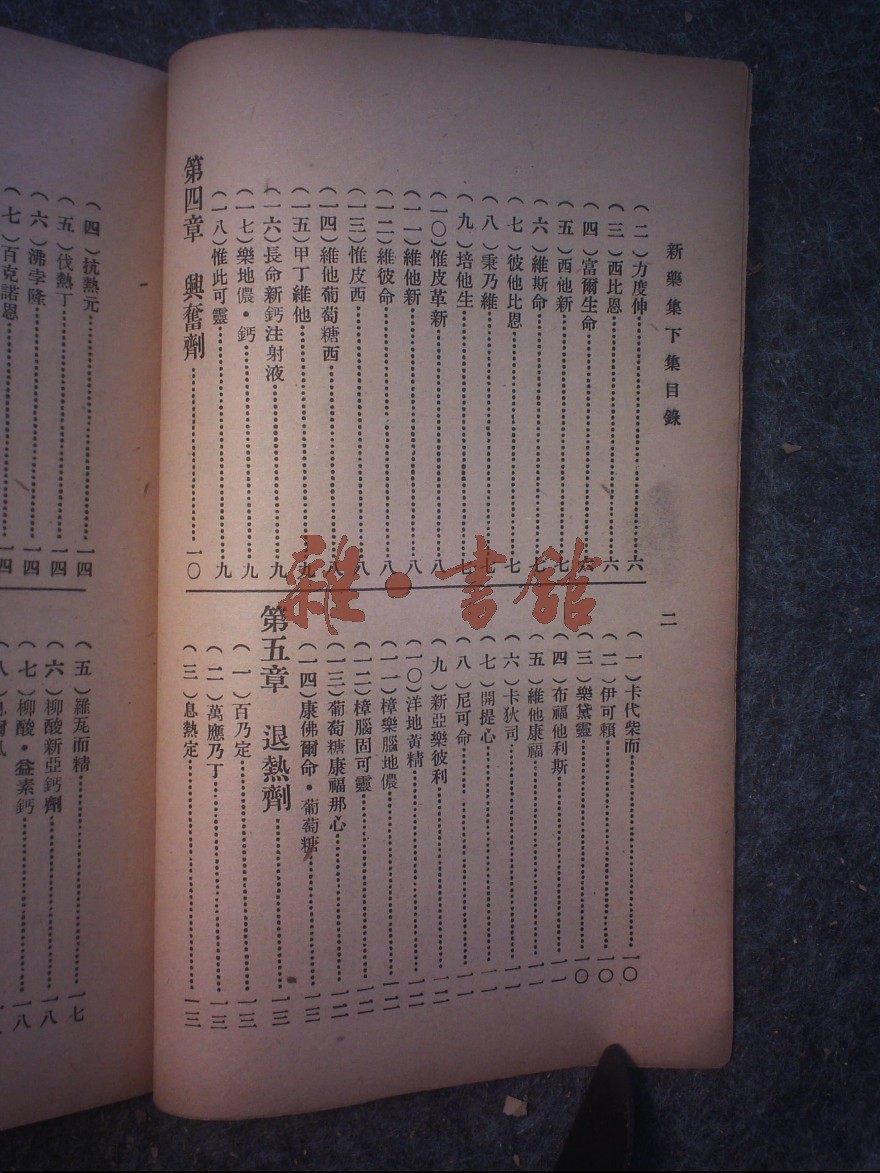 新藥集下集目錄
二
(二)力度伸………六
(三)西比恩………六
(四)富爾生命………六
(五)西他新………七
(六)維斯命………七
(七)彼他比恩………七
(八)秉乃維………七
(九)培他生………七
(一〇)惟皮革新………八
(一一)維他新………八
(一二)維彼命………八
(一三)惟皮西………八
(一四)維他葡萄糖西………八
(一五)甲丁維他………九
(一六)長命新鈣注射液………九
(一七)樂地儂·鈣………九
(一八)惟此可靈………九
第四章 興奮劑………一〇
(一)卡代柴而………一〇
(二)伊可賴………一〇
(三)樂黛靈………一〇
(四)布福他利斯………一一
(五)維他康福………一一
(六)卡狄司………一一
(七)開提心………一一
(八)尼可命………一一
(九)新亞樂彼利………一二
(一〇)洋地黃精………一二
(一一)樟樂腦地儂………一二
(一二)樟腦固可靈………一二
(一三)葡萄糖康福那心………一二
(一四)康佛爾命·葡萄糖………一三
第五章 退熱劑………一三
(一)百乃定………一三
(二)萬應乃丁………一三
(三)息熱定………一三
(四)抗熱元………一四
(五)伐熱丁………一四
(六)沸孛隆………一四
(七)百克諾恩………一四
(五)羅瓦而精………一七
(六)柳酸新亞鈣劑………一八
(七)柳酸·益素鈣………一八
雜·書館